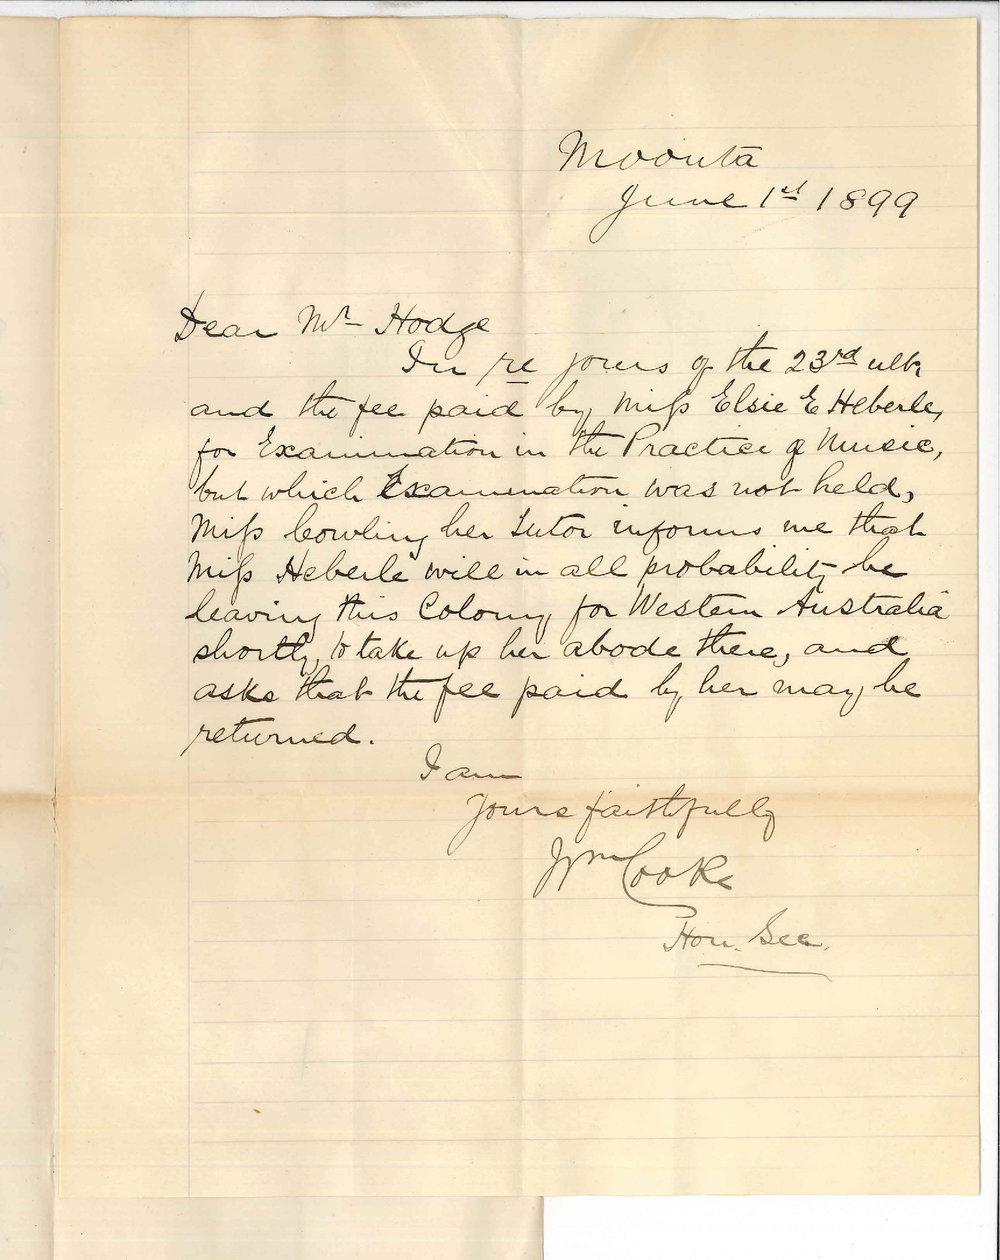 Moonta
June 1st 1899
Dear Mr Hodge
In re yours of the 23rd ult.
and the fee paid by Miss Elsie E Heberle,
for Examination in the Practice of Music,
but which Examination was not held,
Miss Cowling her Tutor informs me that
Miss Heberle will in all probability be
leaving this Colony for Western Australia
shortly, to take up her abode there, and
asks that the fee paid by her may be
returned.
I am
Yours faithfully
Wm Cooke
Hon. Sec.